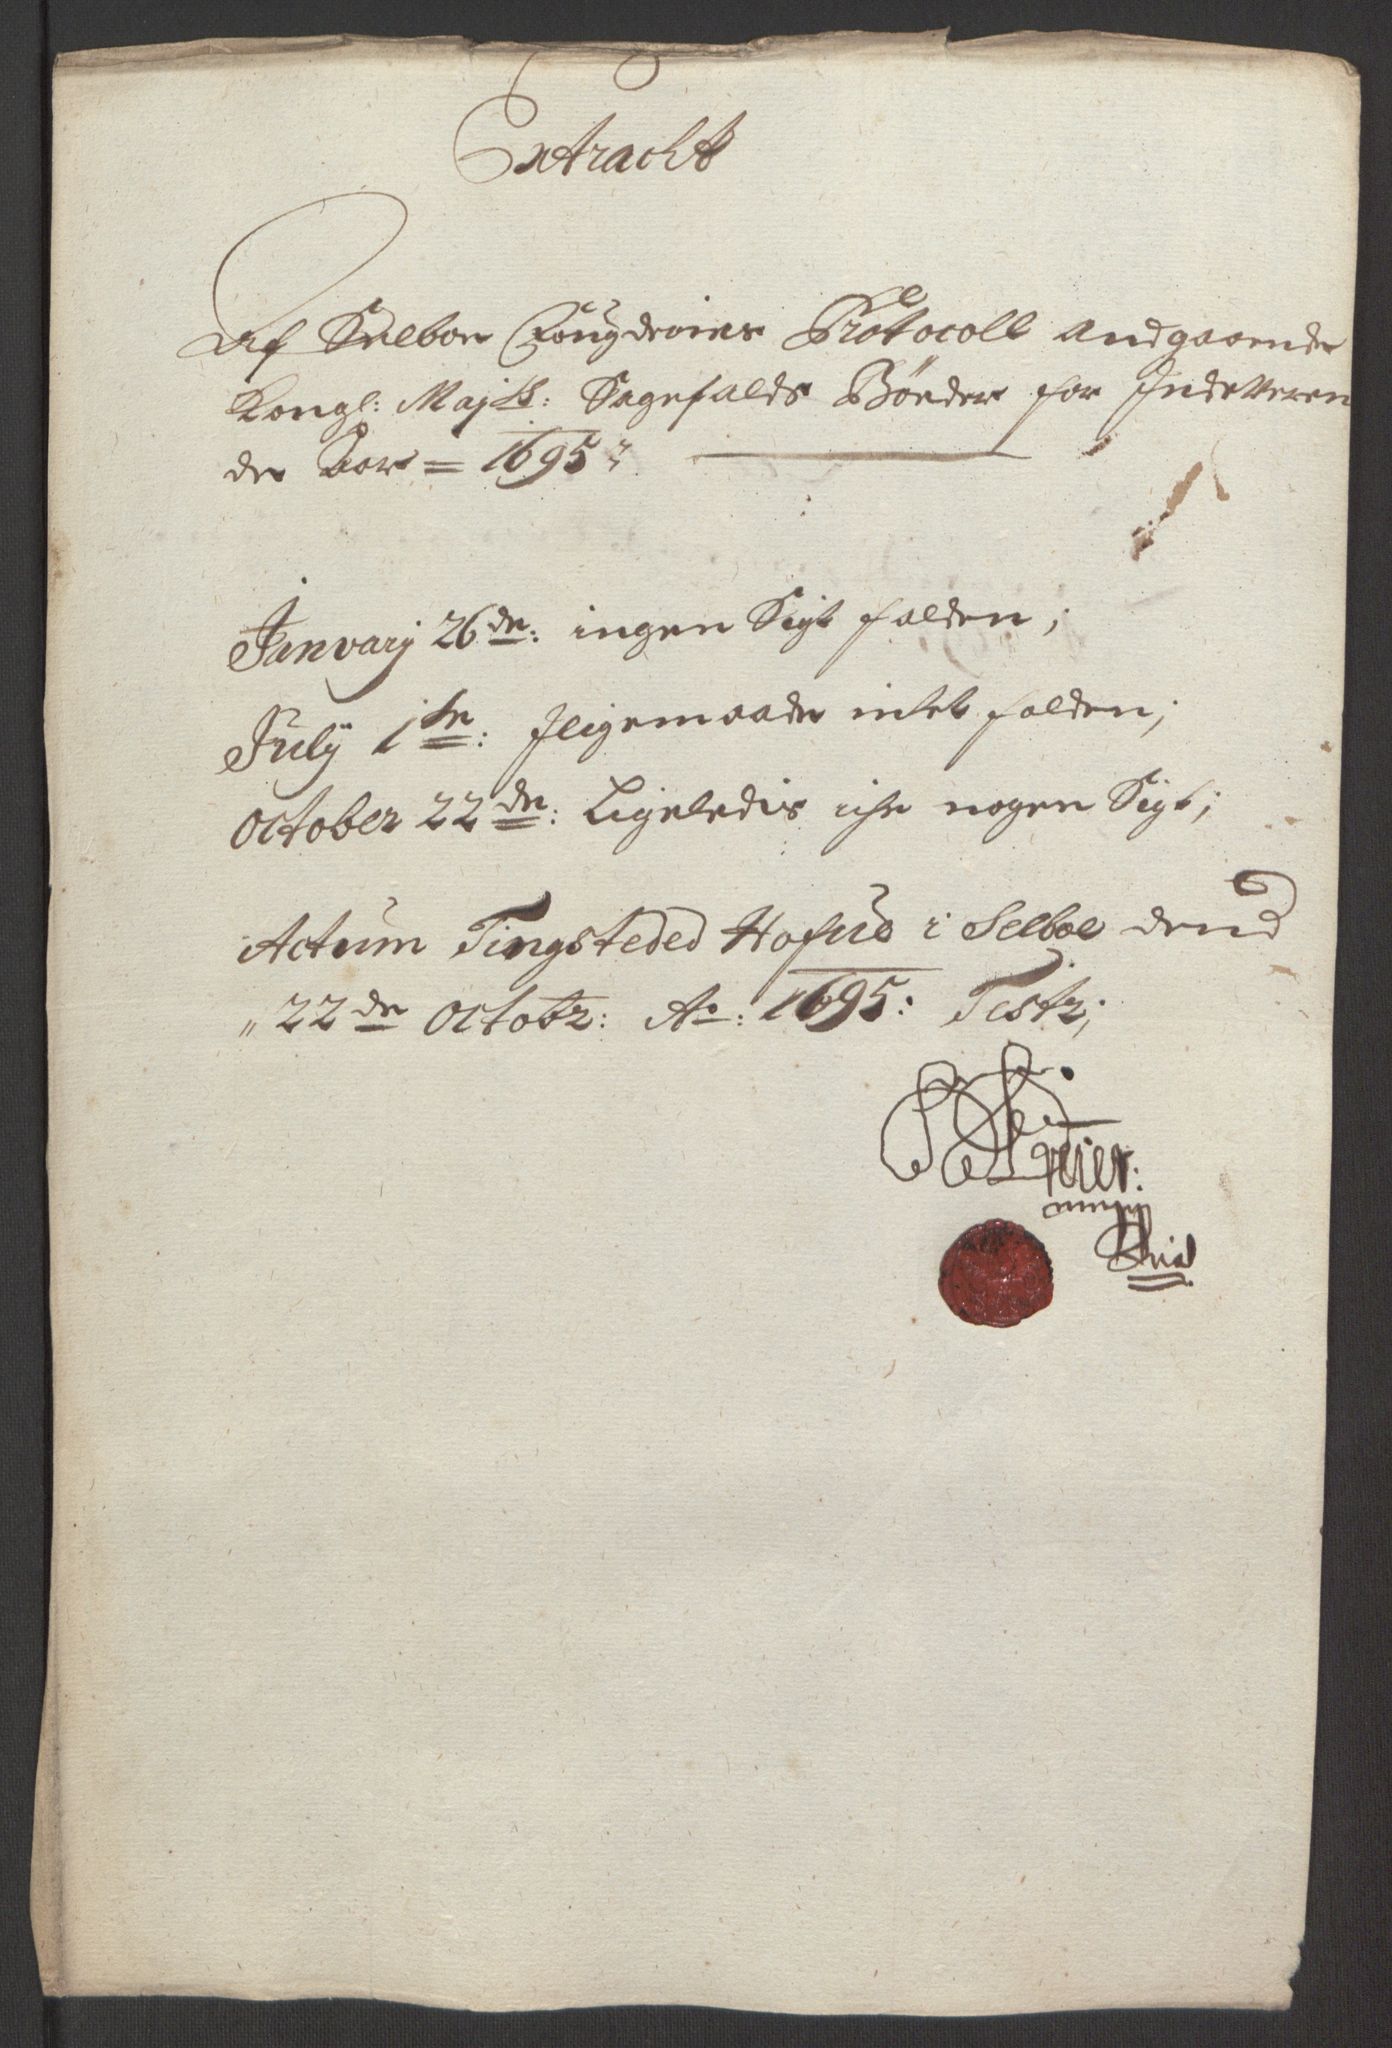 Extracht
Af Selboe Fougderies Protocoll andgaaende
Kongl: Majtt: Sagefalds Bøeder for Indeværen
de Aar = 1695
January 26de: ingen Sigt falden;
July 1ste: Iligemaade intet falden;
October 22de: Ligeledis iche nogen Sigt;
Actum Tingsteded Hofue i Selboe dend
22de Octobr: Ao: 1695: Test;
mppa